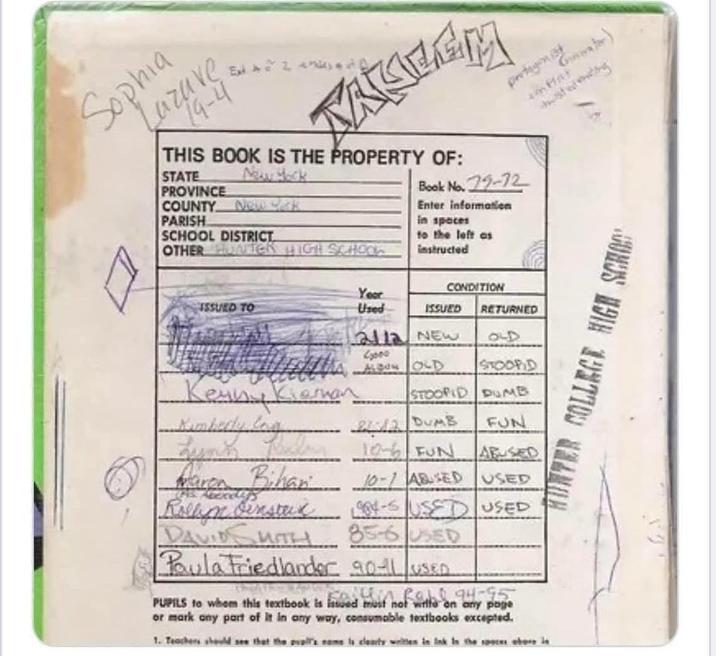 Sophia
Lazare
19-4
TAKEEM
protagonist
conflict
THIS BOOK IS THE PROPERTY OF:
STATE New York
PROVINCE
COUNTY New York
PARISH
SCHOOL DISTRICT
OTHER HUNTER HIGH SCHOOL
Book No. 79-72
Enter information
in spaces
to the left as
instructed
ISSUED TO Year Used CONDITION
ISSUED RETURNED
NEW OLD
ALBUM OLD STOOPID
Kenny Kiernan STOOPID DUMB
Kimberly DUMB FUN
Lynn 10-6 FUN ABUSED
Aaron Bihari 10-1 ABUSED USED
1984-5 USED USED
DAVID SMITH 85-6 USED
Paula Friedlander 90-91 USED
94-95
HUNTER COLLEGE HIGH SCHOOL
PUPILS to whom this textbook is issued must not write on any page
or mark any part of it in any way, consumable textbooks excepted.
1. Teachers should see that the pupil's name is clearly written in ink in the spaces above in